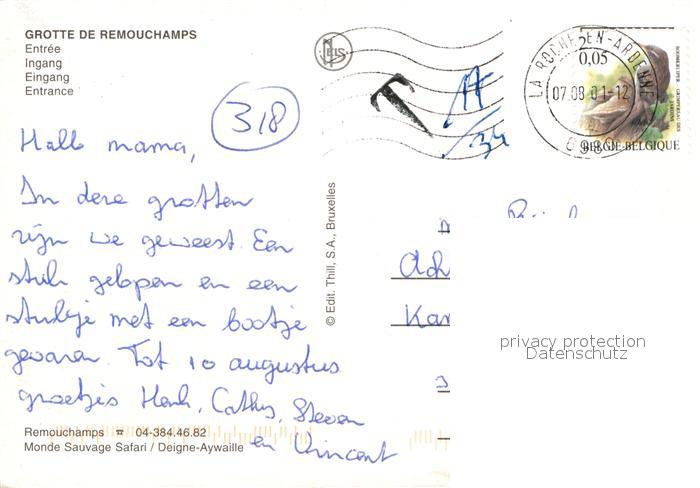 GROTTE DE REMOUCHAMPS
Entrée
Ingang
Eingang
Entrance
318
Hallo mama,
In deze grotten
zijn we geweest. Een
stuk gelopen en een
stukje met een bootje
gevaren. Tot 10 augustus
groetjes Henk, Cathy, Steven
en Vincent
Remouchamps ☎ 04-384.46.82
Monde Sauvage Safari / Deigne-Aywaille
© Edit. Thill, S.A., Bruxelles
NELS
T
LA ROCHE-EN-ARDENNE
07.08.01-12
6980
2
0,05
BELGIË-BELGIQUE
Ach
Kar
privacy protection
Datenschutz